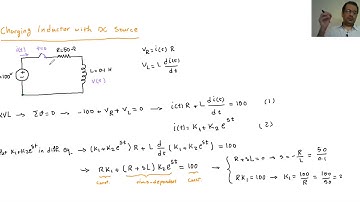 Charging Inductor with DC Source
i(t) t=0 R=50Ω
100V
L=0.1 H
V_R = i(t) R
V_L = L di(t)/dt
KVL → ΣV=0 → -100 + V_R + V_L = 0 → i(t) R + L di(t)/dt = 100 (1)
i(t) = K1 + K2 e^st (2)
Put K1+K2e^st in diff. eq. → (K1+K2e^st) R + L d/dt (K1+K2e^st) = 100
→ RK1 + (R+sL) K2 e^st = 100 → { R+sL=0 → s = -R/L = 50/0.1
const. time-dependent const.
RK1=100 → K1 = 100/R = 100/50 = 2